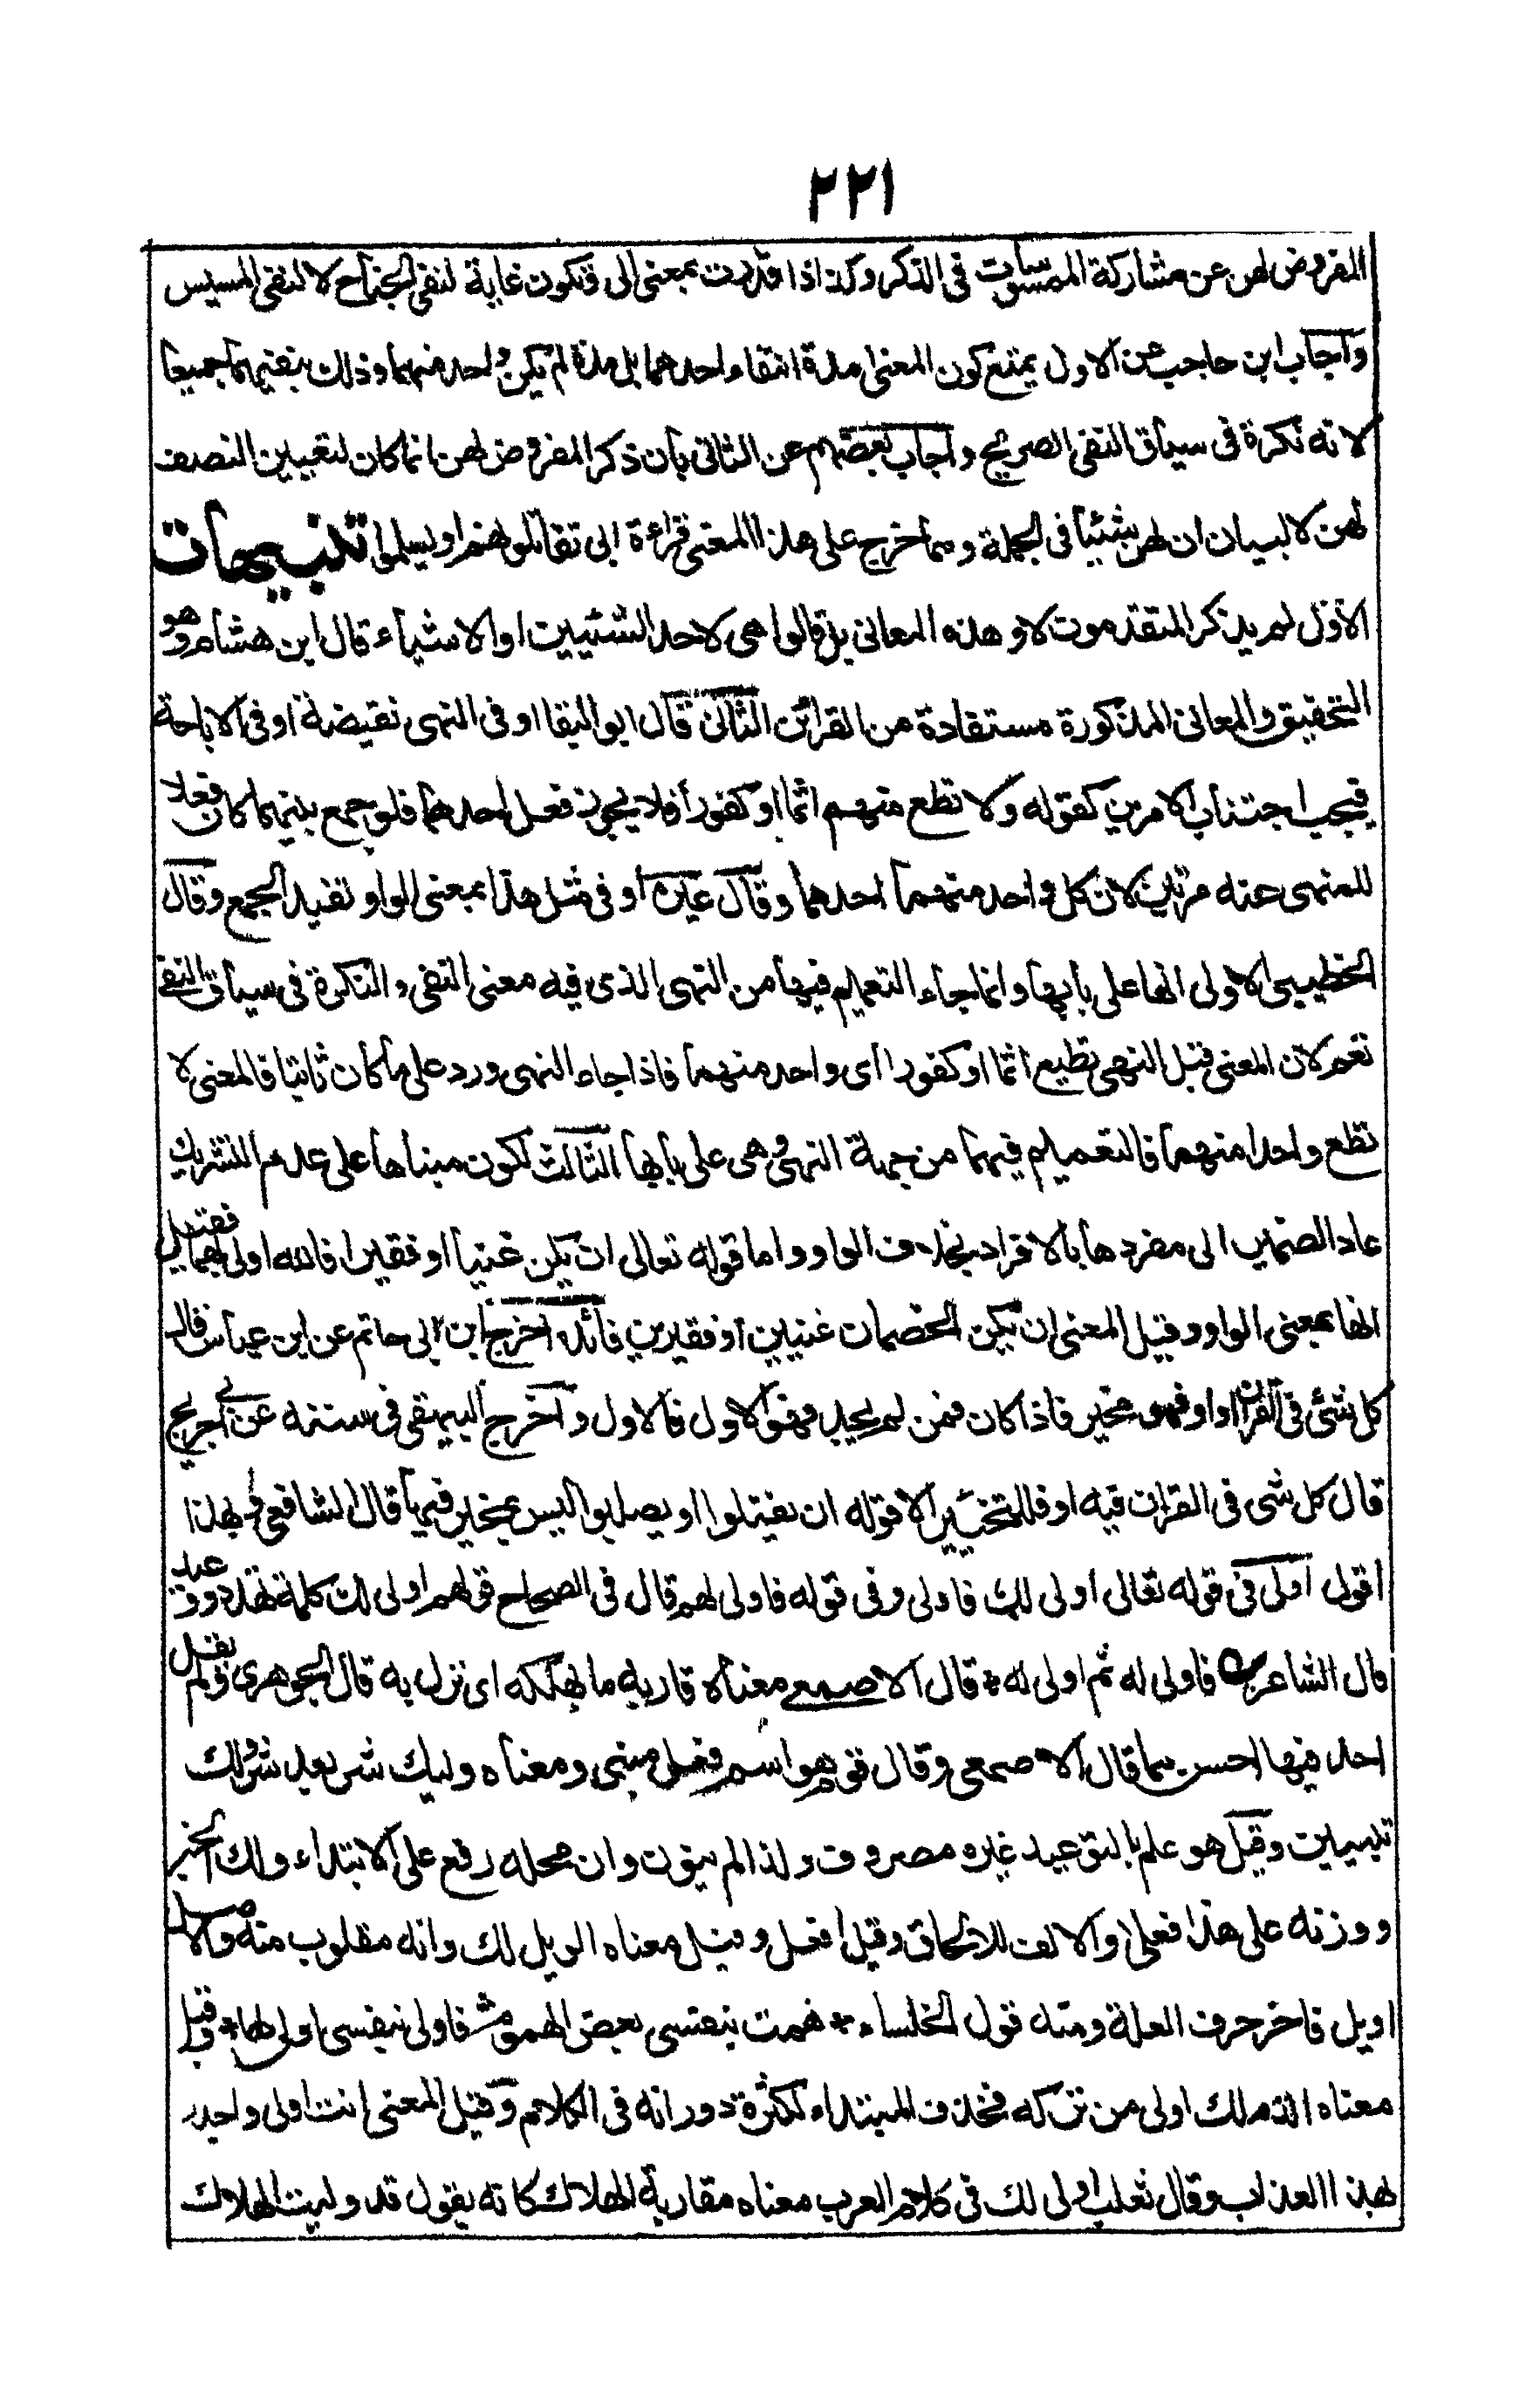 ٢٢١
المفروض لهن عن مشاركة الممسوسات فى الذكر وكذا اذا قدرت بمعنى الى وتكون غاية لنفى الجناح لا لنفى المسيس
واجاب ابن حاجب عن الاول بمنع كون المعنى مدة انتفاء احدهما بل مدة لم يكن واحد منهما وذلك بنفيهما جميعا
لانه نكرة فى سياق النفى الصريح واجاب بعضهم عن الثانى بان ذكر المفروض لهن انما كان لتعيين النصف
لهن لا لبيان ان لهن شيئا فى الجملة ومما خرج على هذا المعنى قراءة ابى تقاتلونهم او يسلموا تنبيهات
الاول لم يذكر المتقدمون لاو هذه المعانى بل قالوا هى لاحد الشيئين او الاشياء قال ابن هشام وهو
التحقيق والمعانى المذكورة مستفادة من القرائن الثانى قال ابو البقا او فى النهى نقيضة او فى الاباحة
فيجب اجتناب الامرين كقوله ولا تطع منهم اثما او كفورا فلا يجوز فعل احدهما فلو جمع بينهما كان فعلا
للمنهى عنه مرتين لان كل واحد منهما احدهما وقال غيره او فى مثل هذا بمعنى الواو تفيد الجمع وقال
الخطيبى الاولى انها على بابها وانما جاء التعميم فيها من النهى الذى فيه معنى النفى والنكرة فى سياق النفى
تعم لان المعنى قبل النهى تطيع اثما او كفورا اى واحد منهما فاذا جاء النهى ورد على ما كان ثابتا فالمعنى لا
تطع واحدا منهما فالتعميم فيهما من جهة النهى وهى على بابها الثالث لكون مبناها على عدم التشريك
عاد الضمير الى مفردها بالافراد بخلاف الواو واما قوله تعالى ان يكن غنيا او فقيرا فالله اولى بهما فقيل
انها بمعنى الواو وقيل المعنى ان يكن الخصمان غنيين او فقيرين فائدة اخرج ابن ابى حاتم عن ابن عباس قال
كل شئ فى القران او او فهو مخير فاذا كان فمن لم يجد فهو الاول فالاول واخرج البيهقى فى سننه عن ابن جريج
قال كل شى فى القران فيه او فللتخيير الا قوله ان يقتلوا او يصلبوا ليس بمخير فيها قال الشافعى وبهذا
اقول اولى فى قوله تعالى اولى لك فاولى وفى قوله فاولى لهم قال فى الصحاح قولهم اولى لك كلمة تهدد ووعيد
قال الشاعر فاولى له ثم اولى له * قال الاصمعى معناه قاربه ما يهلكه اى نزل به قال الجوهرى ولم يقل
احد فيها احسن مما قال الاصمعى وقال قوم هو اسم فعل مبنى ومعناه وليك شر بعد شر ولك
تبيين وقيل هو علم بالتوعيد غيره مصروف ولذا لم ينون وان محله رفع على الابتداء ولك الخبر
ووزنه على هذا فعلى والالف للالحاق وقيل افعل وقيل معناه الويل لك وانه مقلوب منه والاصل
اويل فاخر حرف العلة ومنه قول الخنساء * هممت بنفسى بعض الهموم * فاولى لنفسى اولى لها * وقيل
معناه الذم لك اولى من تركه فحذف المبتداء لكثرة دورانه فى الكلام وقيل المعنى انت اولى واجدر
لهذا العذاب وقال ثعلب اولى لك فى كلام العرب معناه مقاربة الهلاك كانه يقول قد وليت الهلاك